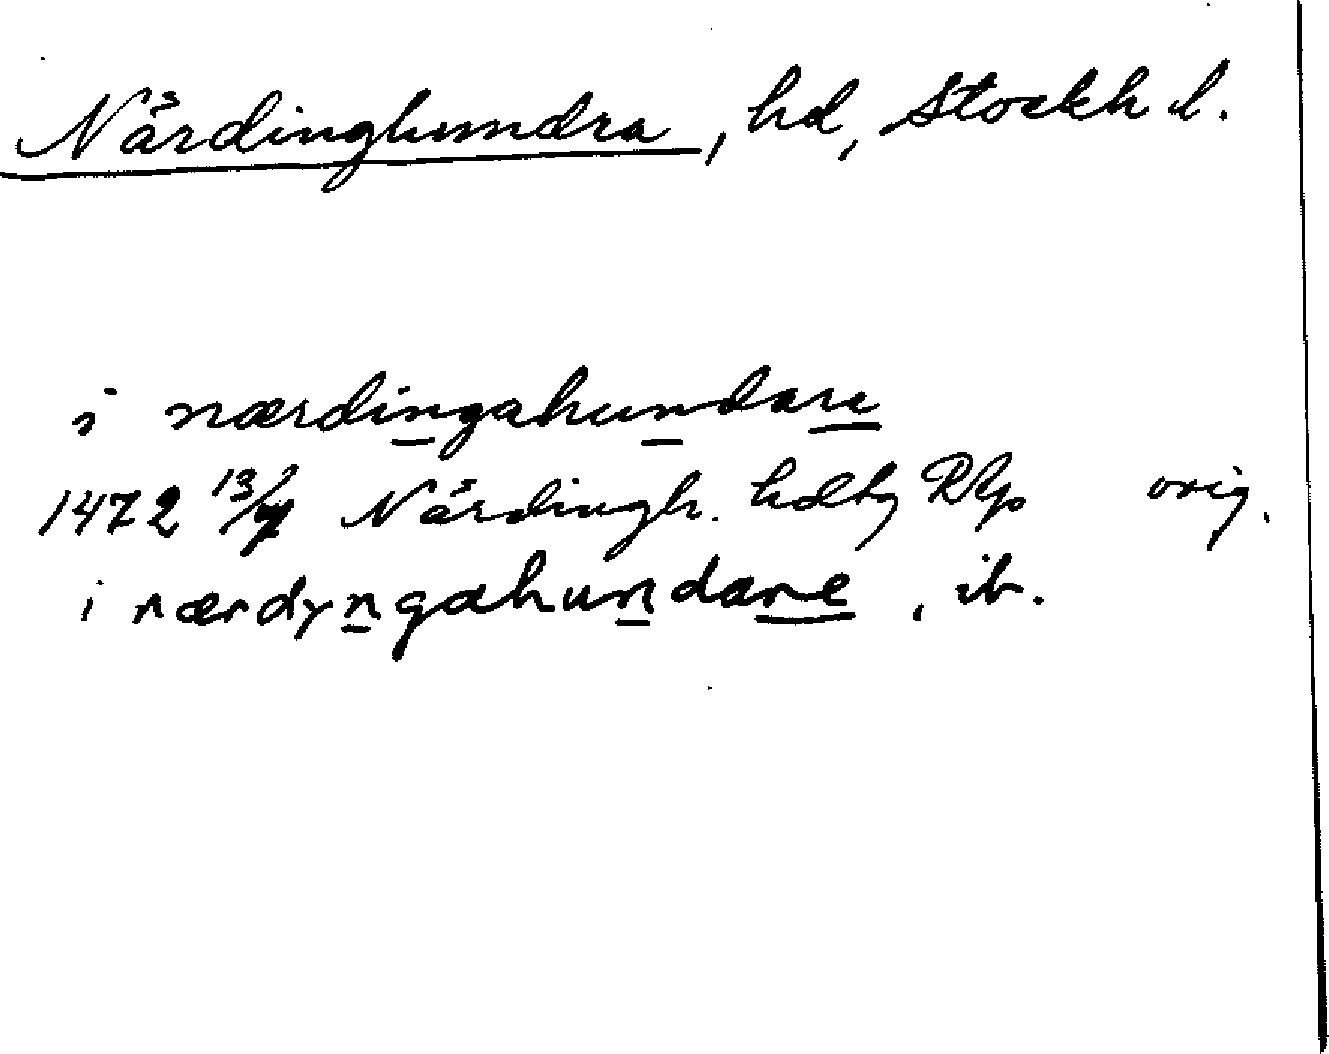 Närdinghundra, hd, Stockh l.
i nærdingahundare
1472 13/4 Närdingh. hdtg RAp orig.
i nærdyngahundare, ib.